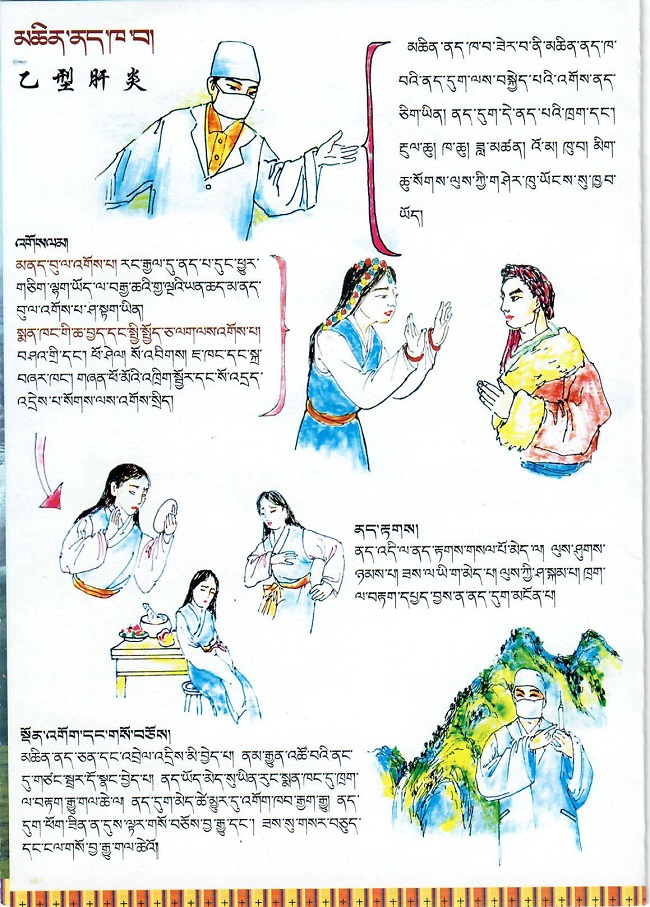 མཆིན་ནད་ཁ་བ།
乙型肝炎
མཆིན་ནད་ཁ་བ་ཟེར་བ་ནི་མཆིན་ནད་ཁ་
བའི་ནད་དུག་ལས་བསྐྱེད་པའི་འགོས་ནད་
ཅིག་ཡིན། ནད་དུག་དེ་ནད་པའི་ཁྲག་དང་།
རྔུལ་ཆུ། ཁ་ཆུ། ཟླ་མཚན། འོ་མ། ཁུ་བ། མིག་
ཆུ་སོགས་ལུས་ཀྱི་གཤེར་ཁུ་ཡོངས་སུ་ཁྱབ་
ཡོད།
འགོས་ལམ།
མནད་བུ་ལ་འགོས་པ། རང་རྒྱལ་དུ་ནད་པ་དུང་ཕྱུར་
གཅིག་ལྷག་ཡོད་ལ་བརྒྱ་ཆའི་
བུ་ལ་འགོས་པ་ཤ་སྟག་ཡིན།
སྨན་ཁང་གི་ཆ་བྱད་དང་སྤྱི་སྤྱོད་ཅ་ལག་ལས་འགོས་པ།
བཤའ་གྲི་དང་། ཕོ་ཤེལ། སོ་འབིགས། ཇ་ཁང་དང་སྐྲ་
བཞར་ཁང་། གཞན་ཕོ་མོའི་འཁྲིག་སྦྱོར་དང་སོ་འདྲད་
འདྲེས་པ་སོགས་ལས་འགོས་སྲིད།
ནད་རྟགས།
ནད་འདི་ལ་ནད་རྟགས་གསལ་པོ་མེད་ལ། ལུས་ཤུགས་
ཉམས་པ། ཟས་ལ་ཡི་ག་མེད་པ། ལུས་ཀྱི་ཤ་སྐམ་པ། ཁྲག་
ལ་བརྟག་དཔྱད་བྱས་ན་ནད་དུག་མངོན་པ།
སྔོན་འགོག་དང་གསོ་བཅོས།
མཆིན་ནད་ཅན་དང་འབྲེལ་འདྲིས་མི་བྱེད་པ། ནམ་རྒྱུན་འཚོ་བའི་ནང་
དུ་གཙང་སྦྲར་དོ་སྣང་བྱེད་པ། ནད་ཡོད་མེད་སུ་ཡིན་རུང་སྨན་ཁང་དུ་ཁྲག་
ལ་བརྟག་རྒྱུ་གལ་ཆེ་ལ། ནད་དུག་མེད་ཚེ་མྱུར་དུ་འགོག་ཁབ་རྒྱག་རྒྱུ། ནད་
དུག་ཕོག་ཟིན་ན་དུས་ལྟར་གསོ་བཅོས་བྱ་རྒྱུ་དང་། ཟས་སུ་གསར་བཅུད་
དང་ངལ་གསོ་བྱ་རྒྱུ་གལ་ཆེའོ།